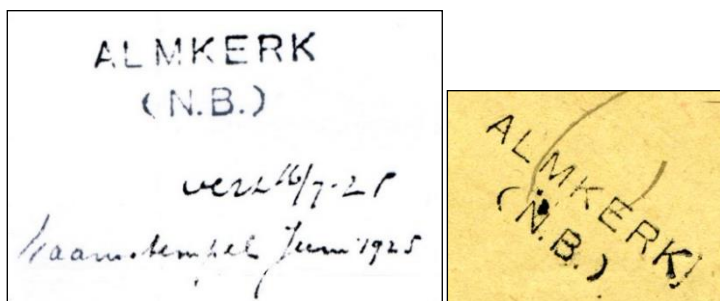 ALMKERK
(N.B.)
verz 16/7-25
Naamstempel Juni 1925
ALMKERK
(N.B.)